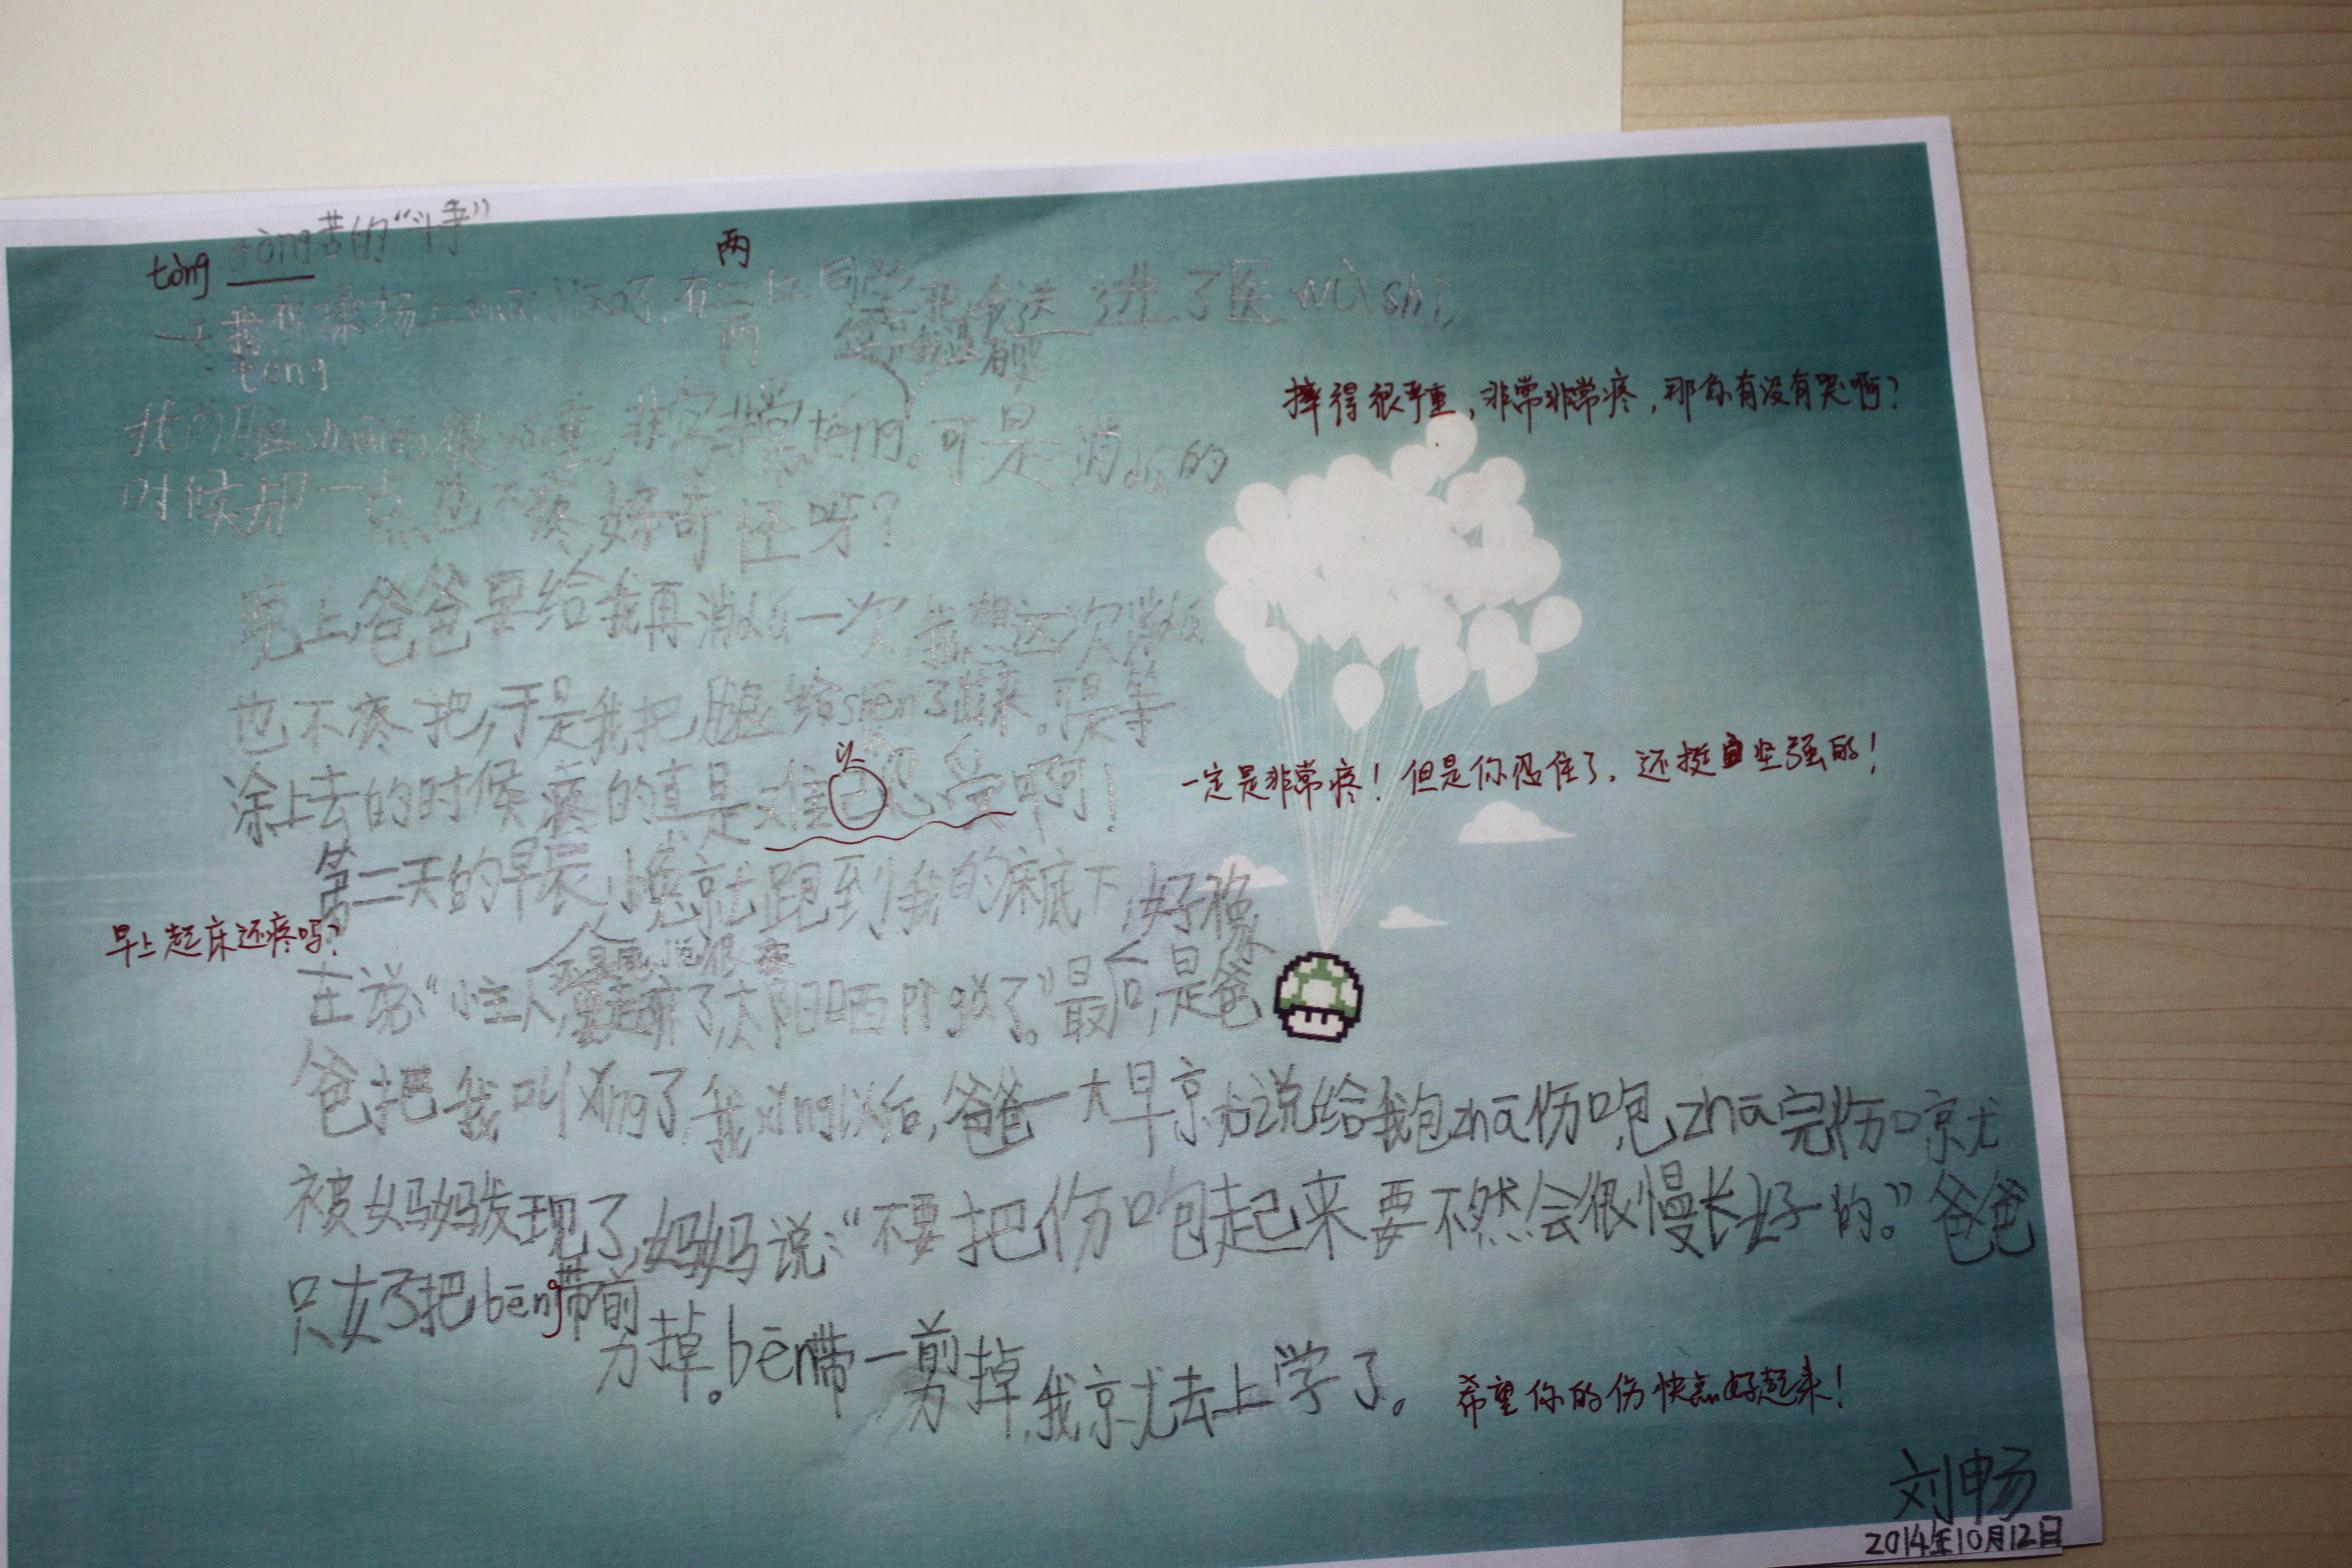 tòng
tòng苦的“斗争”
两
一天我在操场上shuāi jiāo了,有二位同学把我送进了医wùshì,
两
tòng
但是我没有哭
我的腿shuāi的很yán重,非常非常téng。可是消dú的
摔得很严重,非常非常疼,那你有没有哭啊?
时候却一点也不疼,好奇怪呀?
晚上,爸爸要给我再消dú一次,我想这次消dú
也不疼把,于是我把腿给shēn了出来。可是等
以
涂上去的时候疼的直是难已忍受啊!
一定是非常疼!但是你忍住了。还挺坚强的!
第二天的早晨,小兔就跑到我的床底下,好像
早上起床还疼吗?
还是感觉很疼
在说:“小主人,要起床了,太阳晒pì gu了。”最后,是爸
爸把我叫xǐng了,我xǐng以后,爸爸一大早就说给我包zhā伤口包,zhā完伤口就
被妈妈发现了,妈妈说:“不要把伤口包起来要不然会很慢长好的。”爸爸
只好把bēng带剪
掉。bēn带一剪掉,我就去上学了。
希望你的伤快点好起来!
刘畅
2014年10月12日